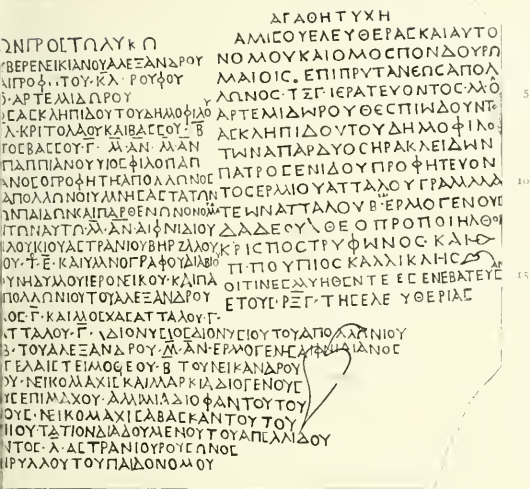 ΩΝΓΡΟΣΤΩΛΥΚΩ
ΥΒΕΡΕΝΕΙΚΙΑΝΟΥΑΛΕΞΑΝΔΡΟΥ
ΤΟΥ·Κ̅Λ̅·ΡΟΥΦΟΥ
ΑΡΤΕΜΙΔΩΡΟΥ
ΣΑΣΚΛΗΠΙΔΟΥΤΟΥΔΗΜΟΦΙΛΟΥ
Λ·ΚΡΙΤΟΛΑΟΥΚΑΙΒΑΣΣΟΥ·Β̅
ΤΟΣΒΑΣΣΟΥ·Γ·Μ̅·ΑΝ·Μ̅·ΑΝ
ΠΑΠΠΙΑΝΟΥΥΙΟΣΦΙΛΟΠΑΠ
ΑΝΟΣΟΠΡΟΦΗΤΗΣΑΠΟΛΛΩΝΟΣ
ΑΠΟΛΛΩΝΟΙΥΜΝΗΣΑΣΤΑΤΩΝ
ΩΝΠΑΙΔΩΝΚΑΙΠΑΡΘΕΝΩΝΟΝΟΜΑ
ΙΤΩΝΑΥΤΩ·Μ̅·ΑΝ·ΑΙΦΝΙΔΙΟΥ
ΛΟΥΚΙΟΥΑΣΤΡΑΝΙΟΥΒΗΡΖΛΛΟΥ
ΟΥ·Τ·Ε̅·ΚΑΙΥΜΝΟΓΡΑΦΟΥΔΙΑΒΙΟ
ΥΝΗΔΥΜΟΥΙΕΡΟΝΕΙΚΟΥ·ΚΑΙΠΑ
ΠΟΛΛΩΝΙΟΥΤΟΥΑΛΕΞΑΝΔΡΟΥ
ΛΟΣ·Γ̅·ΚΑΙΜΟΣΧΑΣΑΤΤΑΛΟΥ·Γ·
ΑΤΤΑΛΟΥ·Γ̅·ΔΙΟΝΥΣΙΟΣΔΙΟΝΥΣΙΟΥΤΟΥΑΠΟΛΛΩΝΙΟΥ
Β·ΤΟΥΑΛΕΞΑΝΔΡΟΥ·Μ̅·ΑΝ·ΕΡΜΟΓΕΝΗΣΑΙΦΝΙΔΙΑΝΟΣ
ΓΕΛΑΙΣΤΕΙΜΟΘΕΟΥ·Β̅ ΤΟΥΝΕΙΚΑΝΔΡΟΥ
ΟΥ·ΝΕΙΚΟΜΑΧΙΣΚΑΙΜΑΡΚΙΑΔΙΟΓΕΝΟΥΣ
ΥΣΕΠΙΜΑΧΟΥ·ΑΜΜΙΑΔΙΟΦΑΝΤΟΥΤΟΥ
ΟΥΣ·ΝΕΙΚΟΜΑΧΙΣΑΒΑΣΚΑΝΤΟΥΤΟΥ
ΙΙΟΥ·ΤΑΤΙΟΝΔΙΑΔΟΥΜΕΝΟΥΤΟΥΑΠΕΛΛΙΔΟΥ
ΝΤΟΣ·Λ̅·ΑΣΤΡΑΝΙΟΥΡΟΥΣΩΝΟΣ
ΗΡΥΛΛΟΥΤΟΥΠΑΙΔΟΝΟΜΟΥ
ΑΓΑΘΗΤΥΧΗ
ΑΜΙΣΟΥΕΛΕΥΘΕΡΑΣΚΑΙΑΥΤΟ
ΝΟΜΟΥΚΑΙΟΜΟΣΠΟΝΔΟΥΡΩ
ΜΑΙΟΙΣ·ΕΠΙΠΡΥΤΑΝΕΩΣΑΠΟΛ
ΛΩΝΟΣ·Τ̅Ξ̅Γ̅·ΙΕΡΑΤΕΥΟΝΤΟΣ·Μ·Ο 5
ΑΡΤΕΜΙΔΩΡΟΥΘΕΣΠΙΩΔΟΥΝΤ
ΑΣΚΛΗΠΙΔΟΥΤΟΥΔΗΜΟΦΙΛΟ
ΤΩΝΑΠΑΡΔΥΟΣΗΡΑΚΛΕΙΔΩΝ
ΠΑΤΡΟΓΕΝΙΔΟΥΠΡΟΦΗΤΕΥΟΝ
ΤΟΣΕΡΜΙΟΥΑΤΤΑΛΟΥΓΡΑΜΜΑ 10
ΤΕΩΝΑΤΤΑΛΟΥΒ̅·ΕΡΜΟΓΕΝΟΥ
ΔΑΔΕΟΥ\ΘΕΟΠΡΟΠΟΙΗΛΘΟ
ΚΡΙΣΠΟΣΤΡΥΦΩΝΟΣ·ΚΑΙ
Π·ΠΟΥΠΙΟΣΚΑΛΛΙΚΛΗΣ
ΟΙΤΙΝΕΣΜΥΗΘΕΝΤΕΣΕΝΕΒΑΤΕΥΣ 15
ΕΤΟΥΣ·Ρ̅Ξ̅Γ̅·ΤΗΣΕΛΕΥΘΕΡΙΑΣ